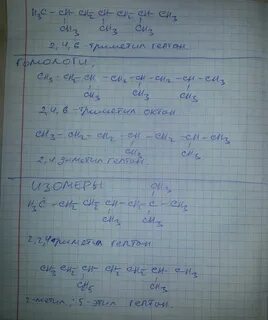 H₃C – CH – CH₂ – CH – CH₂ – CH – CH₃
CH₃ CH₃ CH₃
2,4,6 триметил гептан
Гомологи:
CH₃ – CH₂ – CH – CH₂ – CH – CH₂ – CH – CH₃
CH₃ CH₃ CH₃
2,4,6 – триметил октан
CH₃ – CH₂ – CH₂ – CH – CH₂ – CH – CH₃
CH₃ CH₃
метил гептан
Изомеры
CH₃
H₃C – CH₂ – CH₂ – CH – CH₂ – C – CH₃
CH₃ CH₃
2,2,4 триметил гептан
CH₃ CH₂ CH CH₂ CH₂ CH CH₃
C₂H₅ CH₃
2-метил -5- этил гептан.